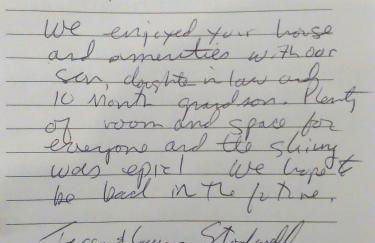 We enjoyed your house
and amenities with our
son, daughter in law and
10 month grandson. Plenty
of room and space for
everyone and the skiing
was epic! We hope to
be back in the future.